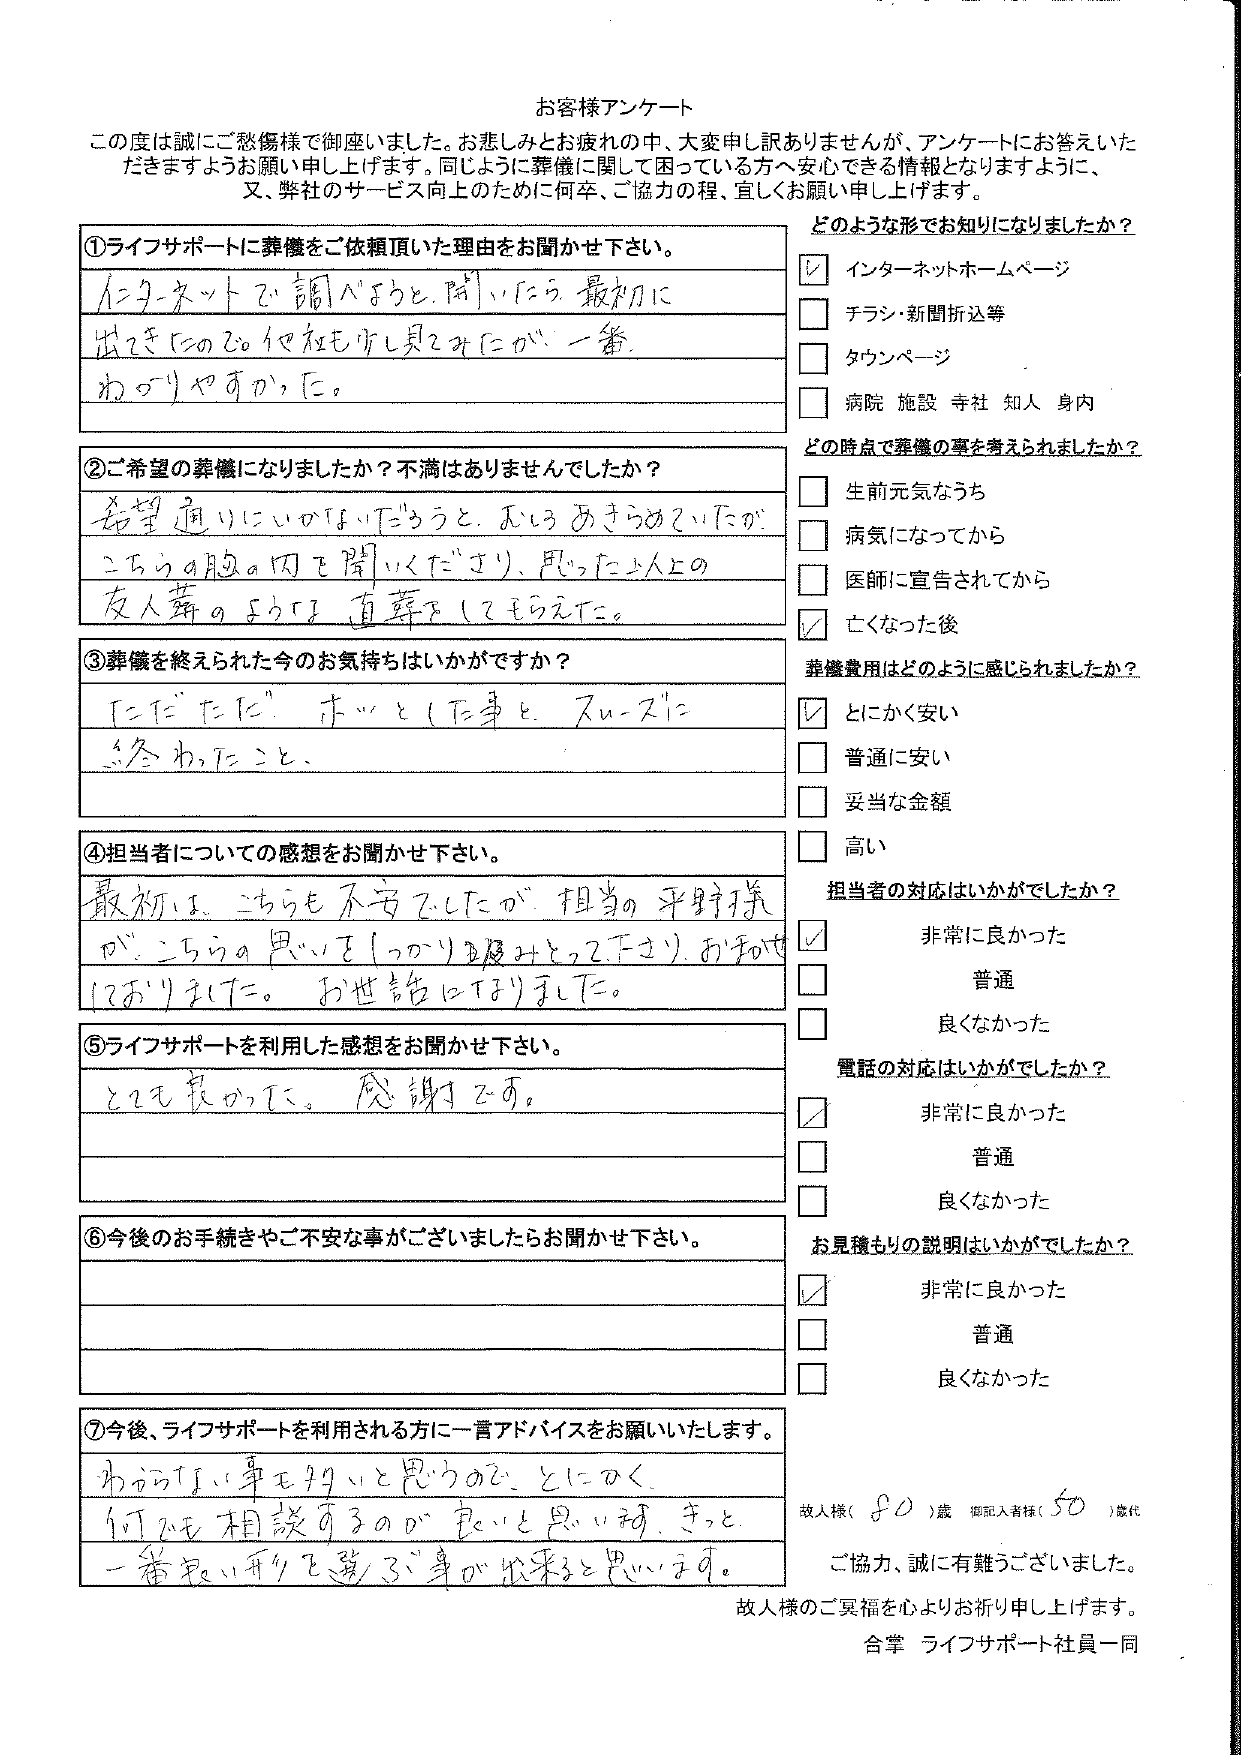 お客様アンケート
この度は誠にご愁傷様で御座いました。お悲しみとお疲れの中、大変申し訳ありませんが、アンケートにお答えいた
だきますようお願い申し上げます。同じように葬儀に関して困っている方へ安心できる情報となりますように、
又、弊社のサービス向上のために何卒、ご協力の程、宜しくお願い申し上げます。
①ライフサポートに葬儀をご依頼頂いた理由をお聞かせ下さい。
インターネットで調べようと、開いたら、最初に
出てきたので。他社も少し見てみたが、一番、
わかりやすかった。
②ご希望の葬儀になりましたか？不満はありませんでしたか？
希望通りにいかないだろうと、むしろあきらめていたが、
こちらの胸の内を聞いくださり、思った以上の
友人葬のような直葬をしてもらえた。
③葬儀を終えられた今のお気持ちはいかがですか？
ただただ、ホッとした事と、スムーズに
終わったこと、
④担当者についての感想をお聞かせ下さい。
最初は、こちらも不安でしたが、担当の平野様
が、こちらの思いをしっかり汲みとって下さり、おまかせ
しておりました。 お世話になりました。
⑤ライフサポートを利用した感想をお聞かせ下さい。
とても良かった。 感謝です。
⑥今後のお手続きやご不安な事がございましたらお聞かせ下さい。
⑦今後、ライフサポートを利用される方に一言アドバイスをお願いいたします。
わからない事も多いと思うので、とにかく、
何でも相談するのが良いと思います、きっと、
一番良い形を選ぶ事が出来ると思います。
どのような形でお知りになりましたか？
インターネットホームページ
チラシ・新聞折込等
タウンページ
病院 施設 寺社 知人 身内
どの時点で葬儀の事を考えられましたか？
生前元気なうち
病気になってから
医師に宣告されてから
亡くなった後
葬儀費用はどのように感じられましたか？
とにかく安い
普通に安い
妥当な金額
高い
担当者の対応はいかがでしたか？
非常に良かった
普通
良くなかった
電話の対応はいかがでしたか？
非常に良かった
普通
良くなかった
お見積もりの説明はいかがでしたか？
非常に良かった
普通
良くなかった
故人様( 80 )歳 御記入者様( 50 )歳代
ご協力、誠に有難うございました。
故人様のご冥福を心よりお祈り申し上げます。
合掌 ライフサポート社員一同